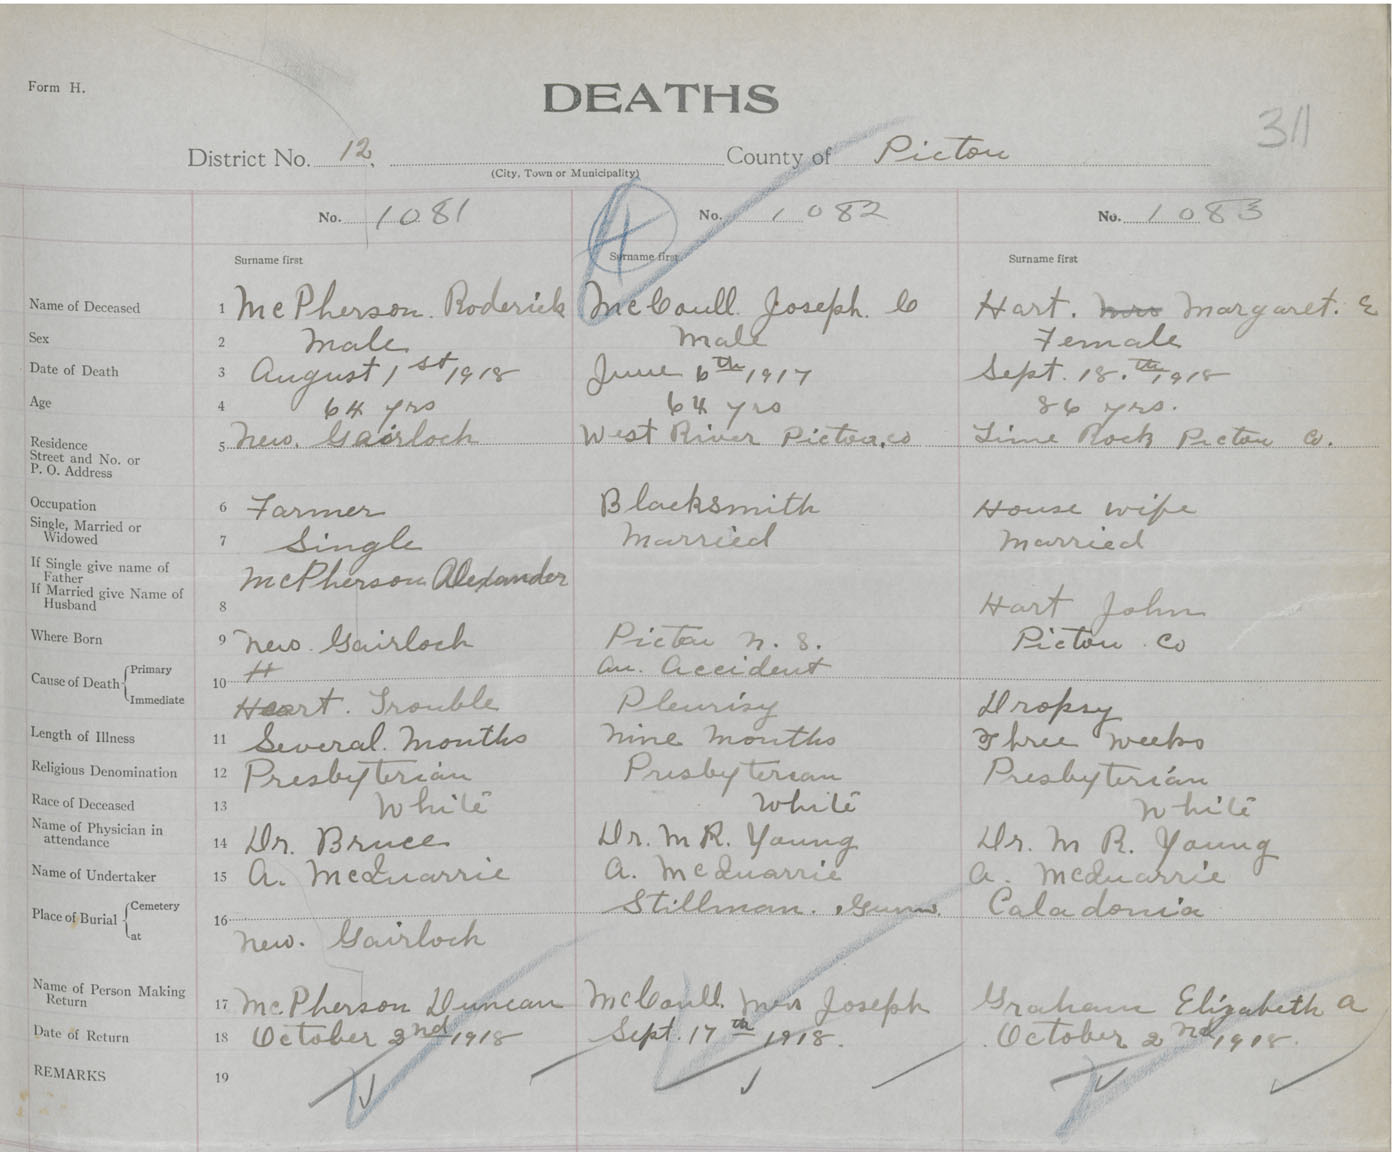 Form H.
DEATHS
311
District No. 12. County of Pictou
(City, Town or Municipality)
No. 1081 No. 1082 No. 1083
4
Surname first Surname first Surname first
Name of Deceased 1 McPherson. Roderick McCaull. Joseph. C Hart. Mrs Margaret. E
Sex 2 Male Male Female
Date of Death 3 August 1st 1918 June 6th 1917 Sept. 18.th 1918
Age 4 64 yrs 64 yrs 86 yrs.
Residence
Street and No. or
P. O. Address
5 New. Gairloch West River Pictou, co Lime Rock Pictou Co.
Occupation 6 Farmer Blacksmith House wife
Single, Married or
Widowed
7 Single Married Married
If Single give name of
Father
McPherson Alexander
If Married give Name of
Husband
8 Hart John
Where Born 9 New. Gairloch Pictou N. S. Pictou Co
Cause of Death Primary 10 H An. Accident
Immediate Heart. Trouble Pleurisy Dropsy
Length of Illness 11 Several. Months Nine Months Three Weeks
Religious Denomination 12 Presbyterian Presbyterian Presbyterian
Race of Deceased 13 White White White
Name of Physician in
attendance
14 Dr. Bruce Dr. M R. Young Dr. M R. Young
Name of Undertaker 15 A. McQuarrie A. McQuarrie A. McQuarrie
Place of Burial Cemetery 16 Stillman. Caladonia
at New. Gairloch
Name of Person Making
Return
17 McPherson Duncan McCaull. Mrs Joseph Graham Elizabeth A
Date of Return 18 October 2nd 1918 Sept. 17th 1918. October 2nd 1918.
REMARKS 19